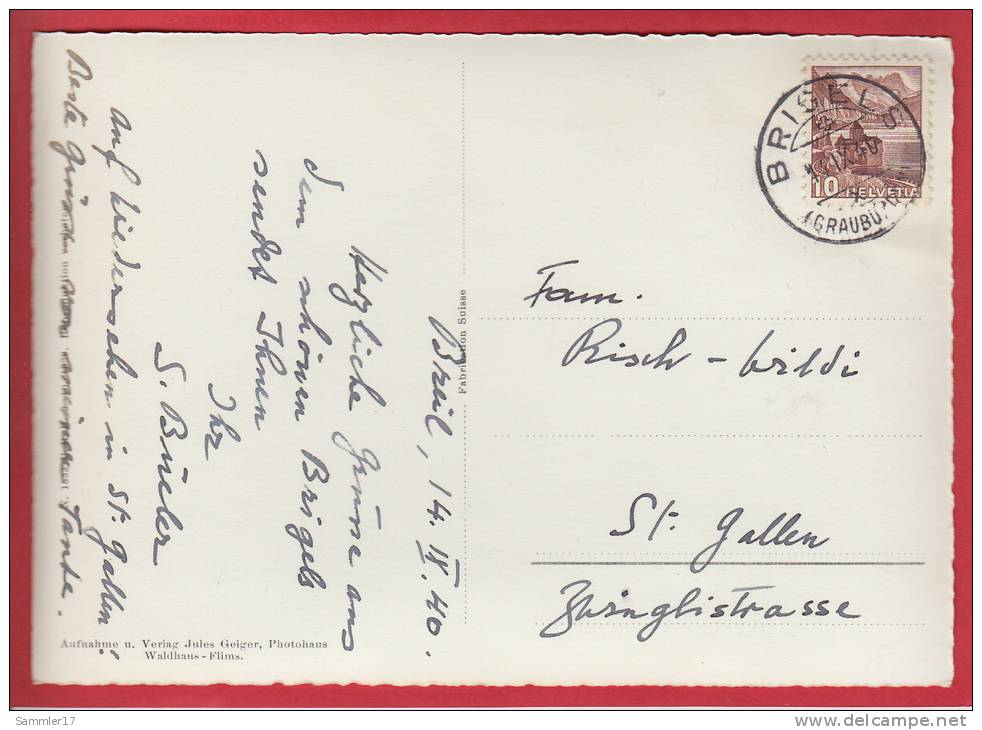 Breil, 14. IX. 40.
Herzliche Grüsse aus
dem schönen Brigels
sendet Ihnen
Ihr
S. Büeler
Auf Wiedersehen in St. Gallen!
Beste Grüsse
Tante.
Aufnahme u. Verlag Jules Geiger, Photohaus
Waldhaus-Flims.
Fabrikation Suisse
BRIGELS
IX.40
(GRAUBÜ
10 HELVETIA
Fam.
Risch-Wildi
St. Gallen
Zwinglistrasse
Sammler17
delcampe.net